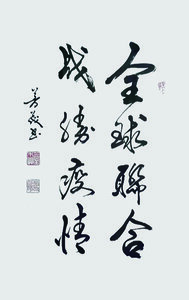 全球聯合
戰勝疫情